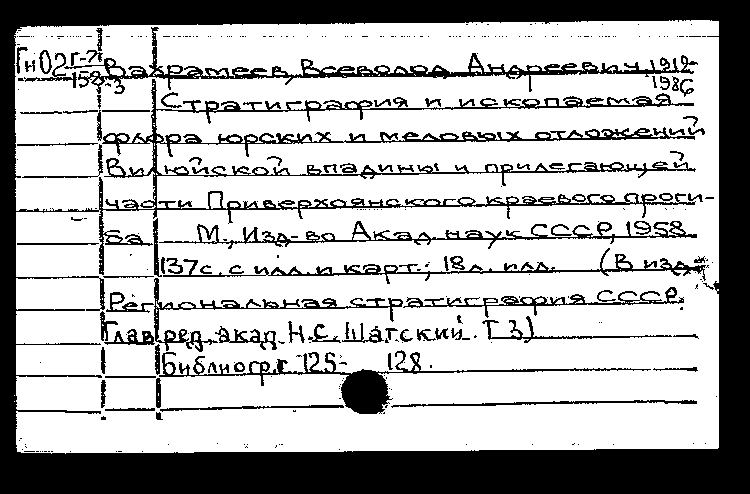 ГнО2 Г-7 Вахрамеев, Всеволод Андреевич, 1912-
158-3 1986
Стратиграфия и ископаемая
флора юрских и меловых отложений
Вилюйской впадины и прилегающей
части Приверхоянского краевого проги-
ба М., Изд-во Акад. наук СССР, 1958.
137с. с илл. и карт.; 18л. илл. (В изд.:
Региональная стратиграфия СССР.
Глав. ред. акад. Н.С. Шатский. Т 3)
Библиогр. с 125- 128.